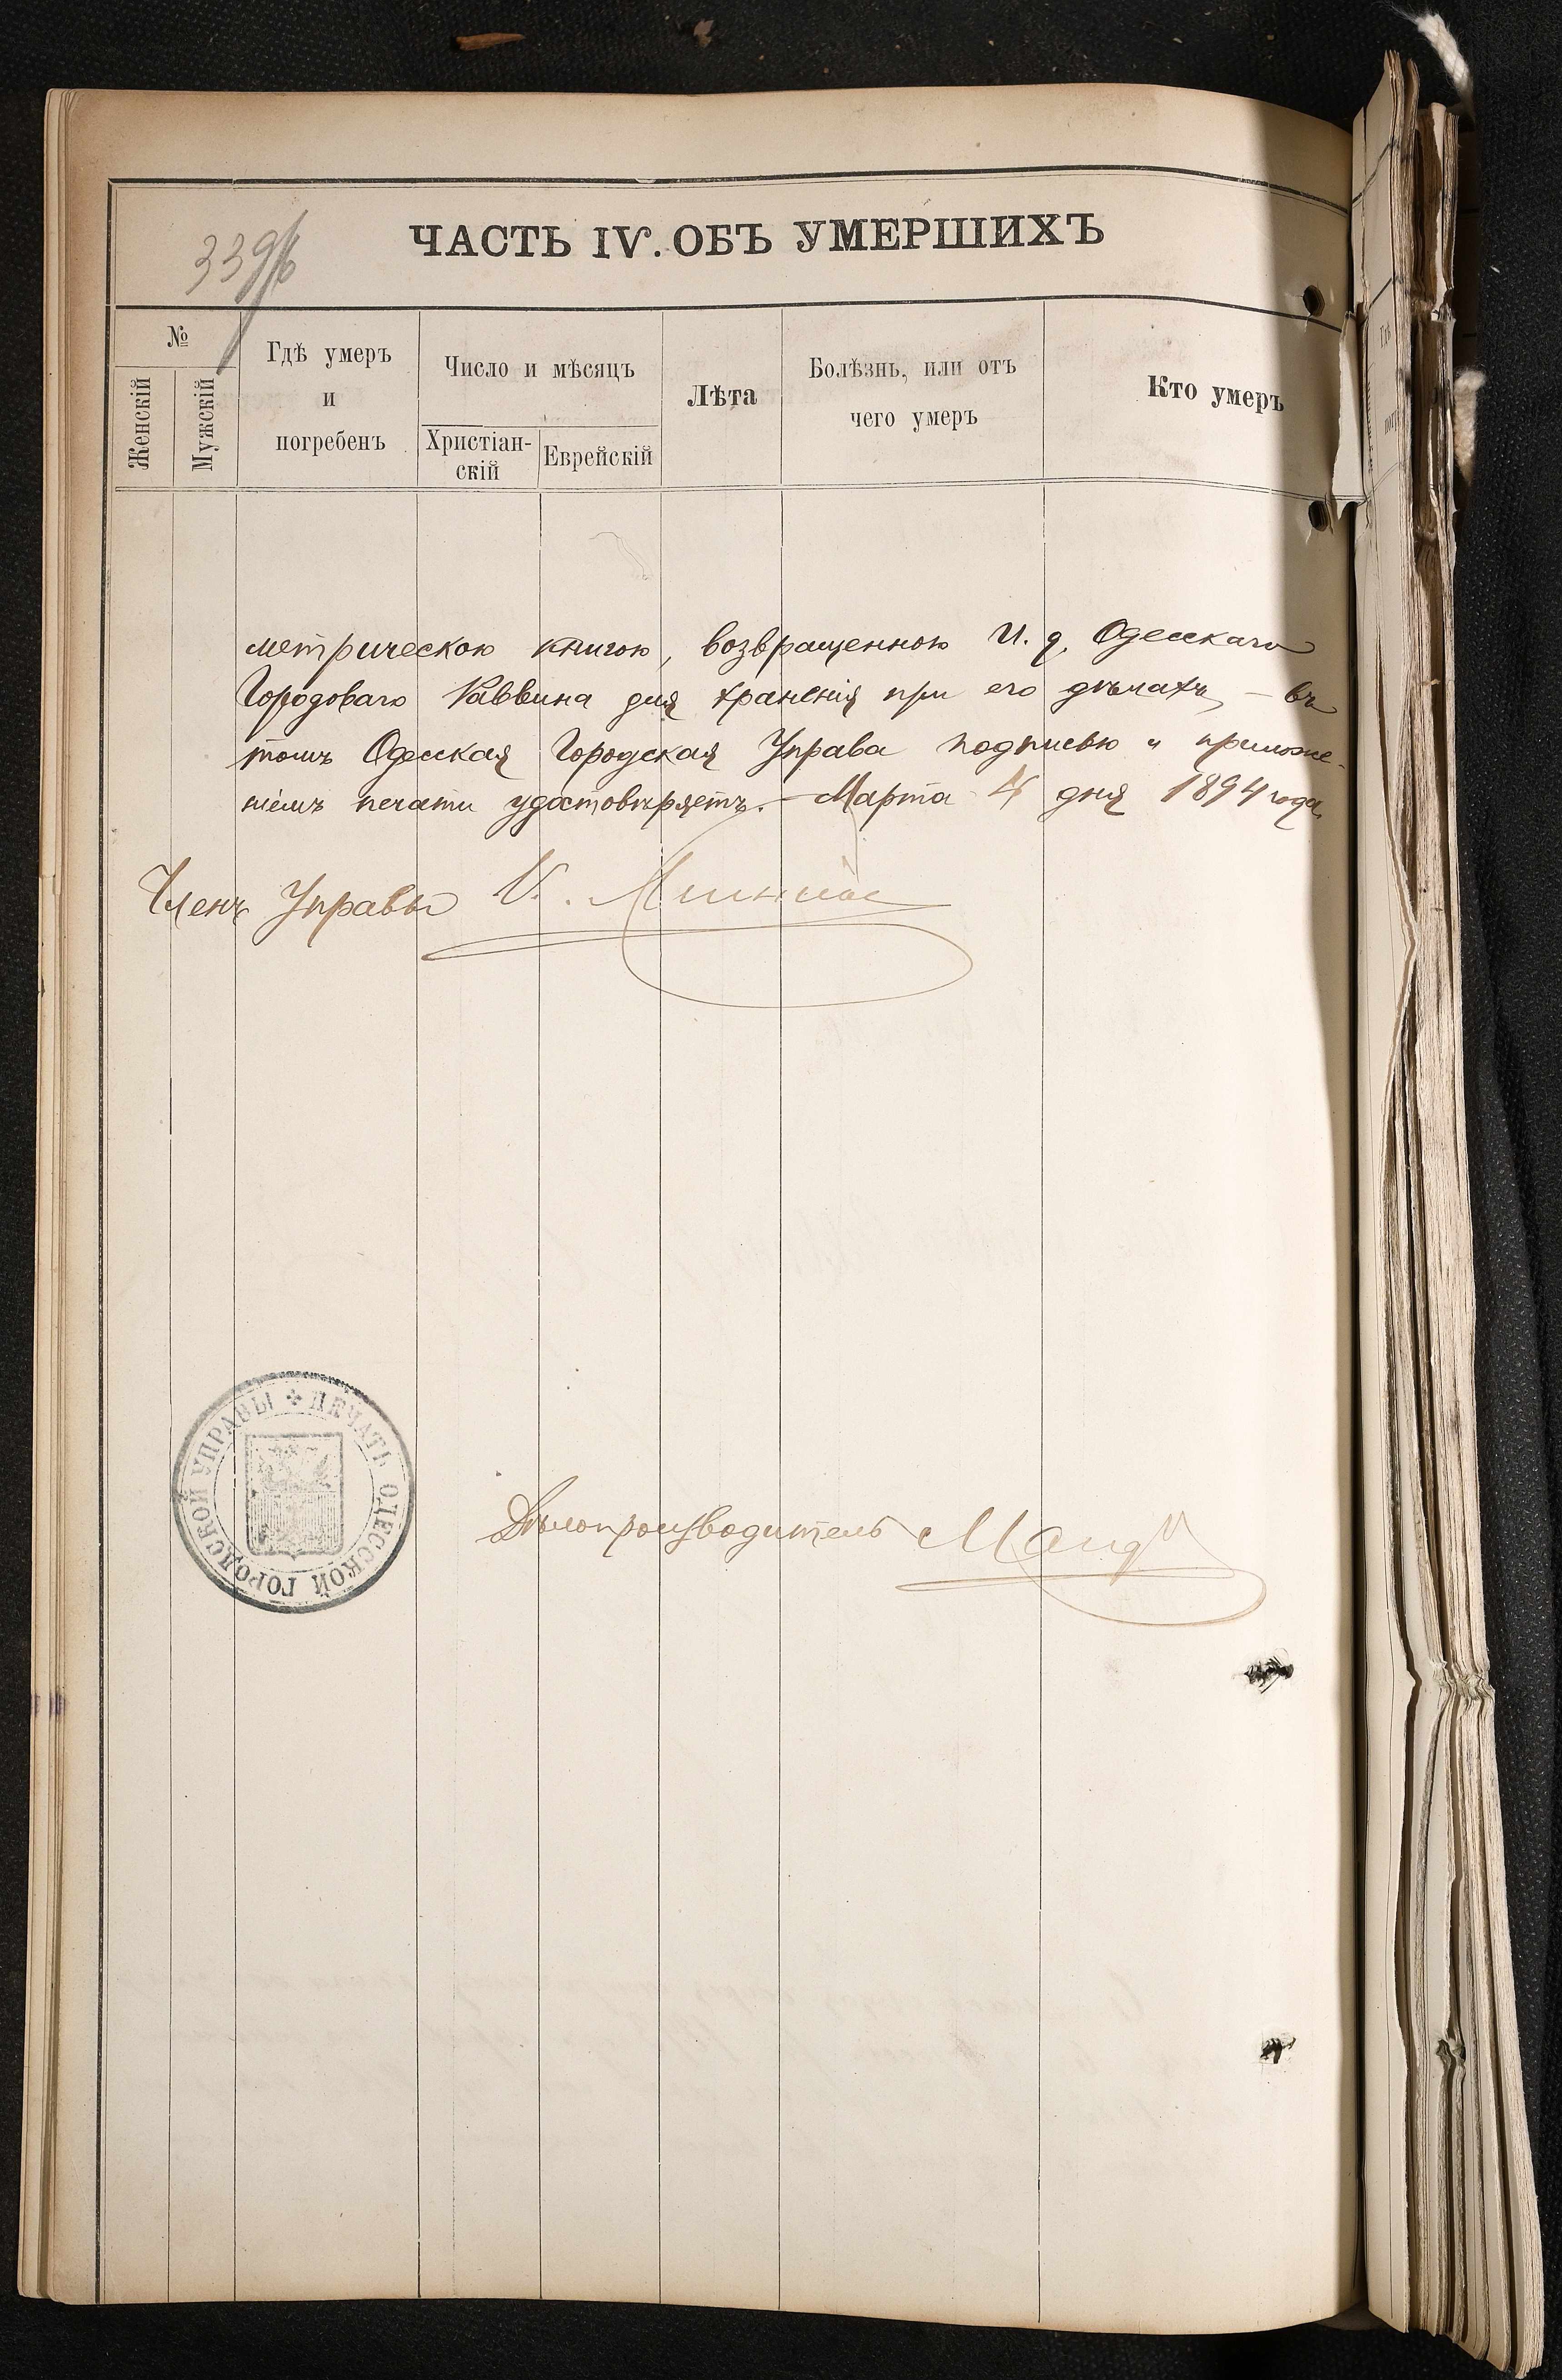 339
ЧАСТЬ IV. ОБЪ УМЕРШИХЪ
№
Женскій
Мужскій
Гдѣ умеръ
и
погребенъ
Число и мѣсяцъ
Христіан-
скій
Еврейскій
Лѣта
Болѣзнь, или отъ
чего умеръ
Кто умеръ
метрическою книгою, возвращенною И. д. Одесскаго
Городоваго Раввина для храненія при его дѣлахъ, – въ
томъ Одесская Городская Управа подписью и приложе-
ніемъ печати удостовѣряетъ. – Марта 4 дня 1894 года.
Членъ Управы
ПЕЧАТЬ ОДЕССКОЙ ГОРОДСКОЙ УПРАВЫ
Дѣлопроизводитель